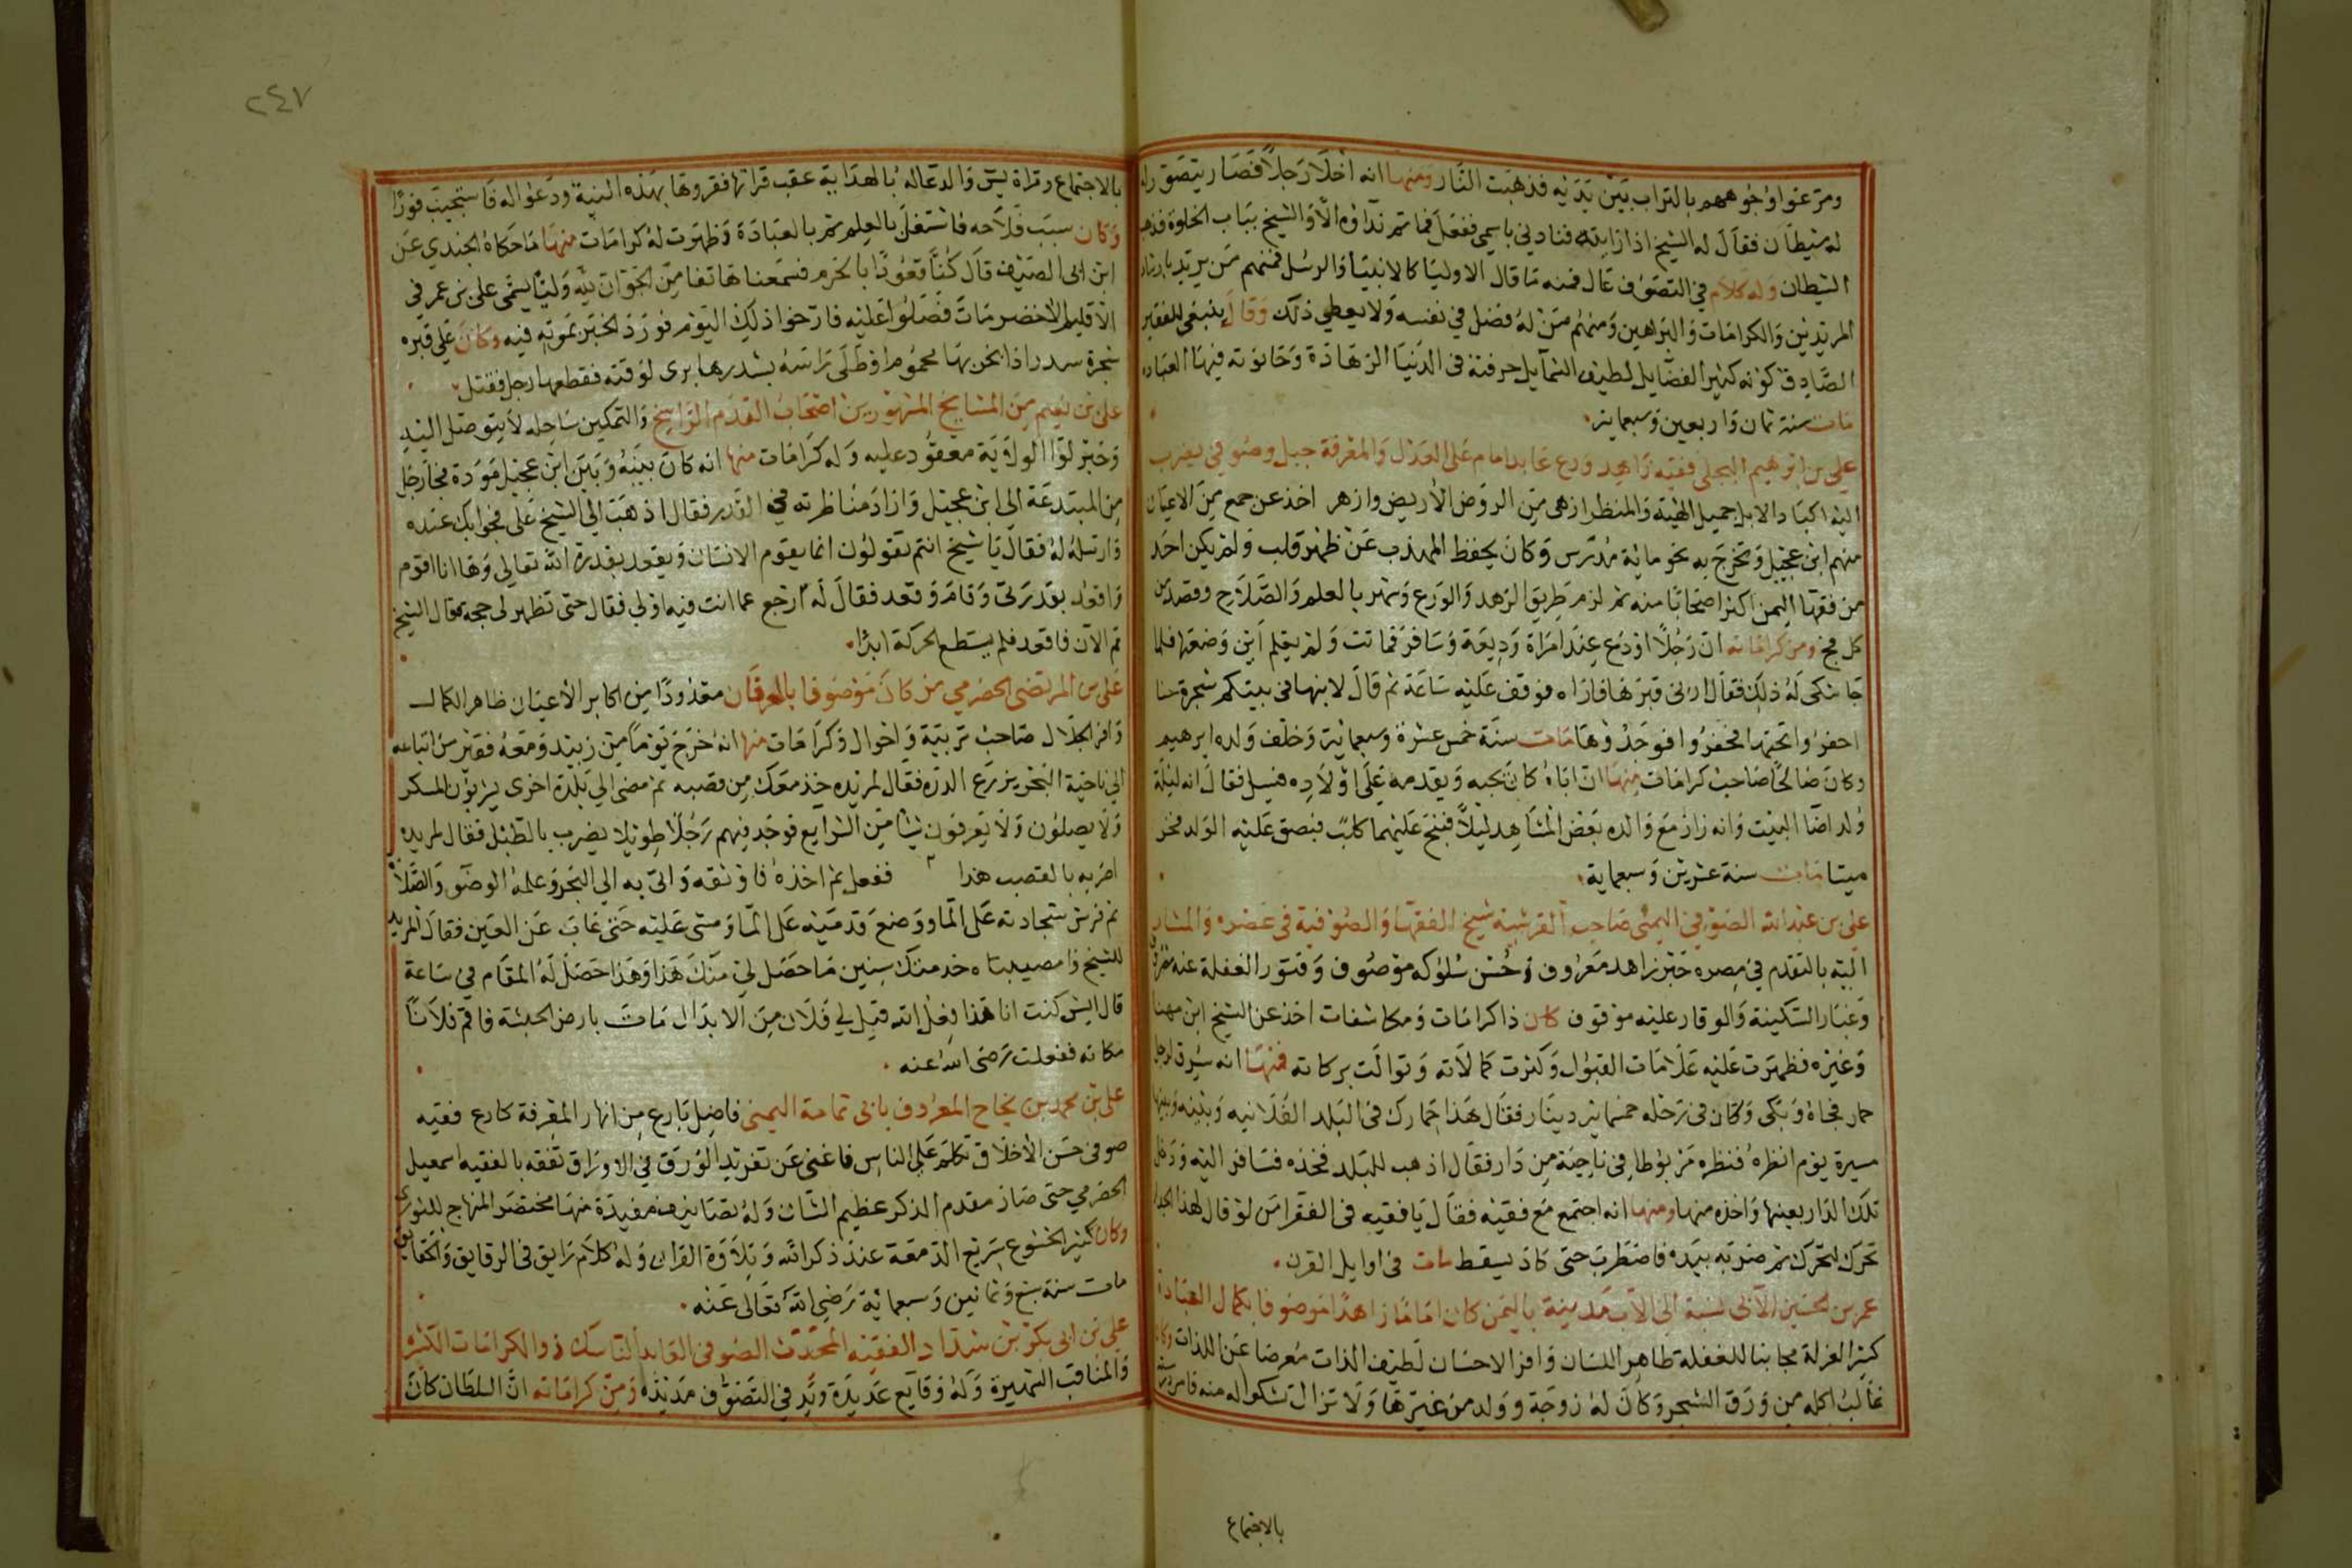 ومرغوا وجوههم بالتراب بين يديه فذهبت النار ومنها انه اخلا رجلا فصار يتصور
له شيطان فقال له الشيخ اذا رايته فنادني باسمي ففعل فما تم نداوه الا والشيخ بباب الخلوة فذهب
الشيطان وله كلام في التصوف عال فمنه ما قال الاوليا كالانبيا والرسل فمنهم من يريد
المريدين والكرامات والبراهين ومنهم من له فضل في نفسه ولا يعطي ذلك وقال ينبغي للفقير
الصادق كونه كثير الفضايل لطيف الشمايل حرفته في الدنيا الزهادة وحانوته فيها العباده
مات سنة ثمان واربعين وسبعماية
علي بن ابرهيم البجلي فقيه زاهد ورع عابد امام على العدل والمعرفة جبل وصوفي يضرب
اليه اكباد الابل جميل الهيئة والمنظر ازهى من الروض الاريض وازهر اخذ عن جمع من الاعيان
منهم ابن عجيل وتخرج به نحو ماية مدرس وكان يحفظ المهذب عن ظهر قلب ولم يكن احد
من فقها اليمن اكثر اصحابا منه ثم لزم طريق الزهد والورع وشهر بالعلم والصلاح وقصد من
كل فج ومن كراماته ان رجلا اودع عند امراة وديعة وسافر فماتت ولم يعلم اين وضعتها فلما
جا شكى له ذلك فقال ارني قبرها فاراه فوقف عليه ساعة ثم قال لابنها في بيتكم شجرة حنا
احفروا تحتها فحفروا فوجدوها مات سنة خمس عشرة وسبعماية وخلف ولده ابرهيم
وكان صالحا صاحب كرامات منها ان اباه كان يحبه ويقدمه على اولاده فسيل فقال انه ليلة
ولد اضا البيت وانه زار مع والده بعض المشاهد ليلا فنبح عليهما كلب فبصق عليه الولد فخر
ميتا مات سنة عشرين وسبعماية
علي بن عبد الله الصوفي اليمني صاحب القرشية شيخ الفقها والصوفية في عصره والمشار
اليه بالتقدم في مصره حبر زاهد معروف وحسن سلوكه موصوف وفتور الغفلة عنه مصروف
وغبار السكينة والوقار عليه موقوف كان ذا كرامات ومكاشفات اخذ عن الشيخ ابن مهنا
وغيره فظهرت عليه علامات القبول وكثرت كمالاته وتوالت بركاته فمنها انه سرق لرجل
حمار فجاه وبكى وكان في رحله خمسماية دينار فقال هذا حمارك في البلد الفلانيه وبينه وبينها
مسيرة يوم انظره فنظره مربوطا في ناحية من دار فقال اذهب للبلد فخذه فسافر اليه ودخل
تلك الدار بعينها واخذه منها ومنها انه اجتمع مع فقيه فقال يا فقيه في الفقرا من لو قال لهذا الجدار
تحرك لتحرك ثم ضربه بيده فاضطرب حتى كاد يسقط مات في اوايل القرن
عمر بن حسين الابي نسبة الى الاب مدينة باليمن كان اماما زاهدا موصوفا بكمال العبادة
كثير العزلة مجانبا للغفلة طاهر اللسان وافر الاحسان لطيف الذات معرضا عن اللذات وكان
غالب اكله من ورق الشجر وكان له زوجة وولد من غيرها ولا تزال تشكوا له منه فامر
بالاجتماع
٢٤٧
بالاجتماع وقراة يس والدعا له بالهداية عقب قراتها فقروها بهذه النية ودعوا له فاستجيب فورا
وكان سبب فلاحه فاشتغل بالعلم ثم بالعبادة وظهرت له كرامات منها ما حكاه الجندي عن
ابن ابي الصيف قال كنا قعودا بالحرم فسمعنا هاتفا من الجو ان لله وليا يسمى علي بن عمر في
الاقليم الاخضر مات فصلوا عليه فارخوا ذلك اليوم فورد الخبر بموته فيه وكان على قبره
شجرة سدر اذا بخر بها محموم او طلى راسه بسدرها برى لوقته فقطعها رجل فقتل
علي بن نعيم من المشايخ المشهورين اصحاب القدم الراسخ والتمكين ساحله لا يتوصل اليه
وحبر لوا الولاية معقود عليه وله كرامات منها انه كان بينه وبين ابن عجيل مودة فجا رجل
من المبتدعة الى ابن عجيل واراد مناظرته في القدر فقال اذهب الى الشيخ علي فجوابك عنده
وارسله له فقال يا شيخ انتم تقولون انما يقوم الانسان ويقعد بقدرة الله تعالى وها انا اقوم
واقعد بقدرتي وقام وقعد فقال له ارجع عما انت فيه اولي فقال حتى تظهر لي حجه فقال الشيخ
قم الان فاقعد فلم يستطع الحركة ابدا
علي بن المرتضى الحضرمي من كان موصوفا بالعرفان معدودا من اكابر الاعيان ظاهر الكمال
وافر الجلال صاحب تربية واحوال وكرامات منها انه خرج يوما من زبيد ومعه فقير من اتباعه
الى ناحية البحر يزرع الذره فقال لمريده خذ معك من قصبه ثم مضى الى بلدة اخرى يشربون المسكر
ولا يصلون ولا يعرفون شيا من الشرايع فوجد فيهم رجلا طويلا يضرب بالطبل فقال لمريده
اضربه بالقصب هذا ففعل ثم اخذه فاوثقه واتى به الى البحر وعلمه الوضو والصلاة
ثم فرش سجادته على الما ووضع قدميه على الما ومشى عليه حتى غاب عن العين فقال المريد
للشيخ وامصيبتاه خدمتك سنين ما حصل لي منك هذا وهذا حصل له المقام في ساعة
قال ايش كنت انا هذا فعل الله قيل لي فلان من الابدال مات بارض الحبشة فاقم فلانا
مكانه ففعلت رضى الله عنه
علي بن محمد بن نجاح المعروف بابن ثمامة اليمني فاضل بارع من انهار المعرفة كارع فقيه
صوفى حسن الاخلاق تكلم على الناس فاغنى عن تغريد الورق في الاوراق تفقه بالفقيه اسمعيل
الحضرمي حتى صار مقدم الذكر عظيم الشان وله تصانيف مفيدة منها مختصر المنهاج للنووى
وكان كثير الخشوع سريع الدمعة عند ذكر الله وتلاوة القران وله كلام رايق في الرقايق والحقايق
مات سنة سبع وثمانين وسبعماية رضي الله تعالى عنه
علي بن ابي بكر بن شداد الفقيه المحدث الصوفي العابد الناسك ذو الكرامات الكثيره
والمناقب الشهيرة وله وقايع عديدة ويد في التصوف مديده ومن كراماته ان السلطان كان